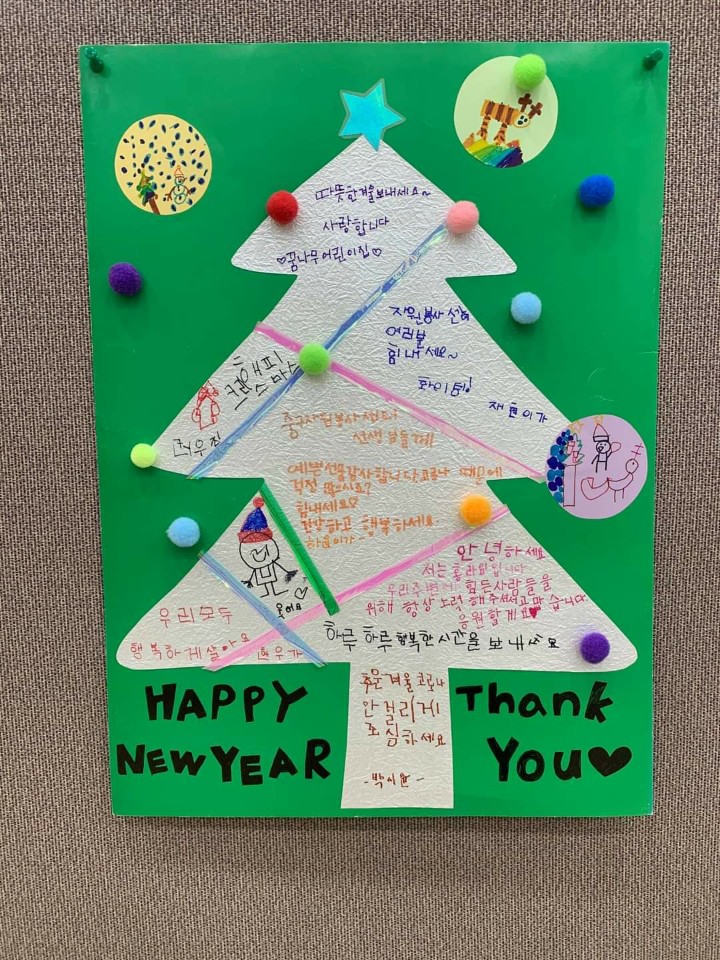 따뜻한겨울보내세요~
사랑합니다
♡꿈나무어린이집♡
자원봉사
여러분
힘내세요~
화이팅!
재현이가
해피
크리스마스
중구자원봉사센터
선생님들께
예쁜선물감사합니다 코로나 때문에
걱정 많으시죠?
힘내세요♡
건강하고 행복하세요
하윤이가~
안녕하세요
저는 입니다
우리주변에 힘든사람들을
위해 항상 노력 해주셔서고마습니다
응원할게요♥
하루 하루 행복한 시간을 보내세요
웃어요
우리모두
행복하게살아요 현우가
추운겨울 코로나
안걸리게
조심하세요
HAPPY
NEW YEAR
Thank
You♥